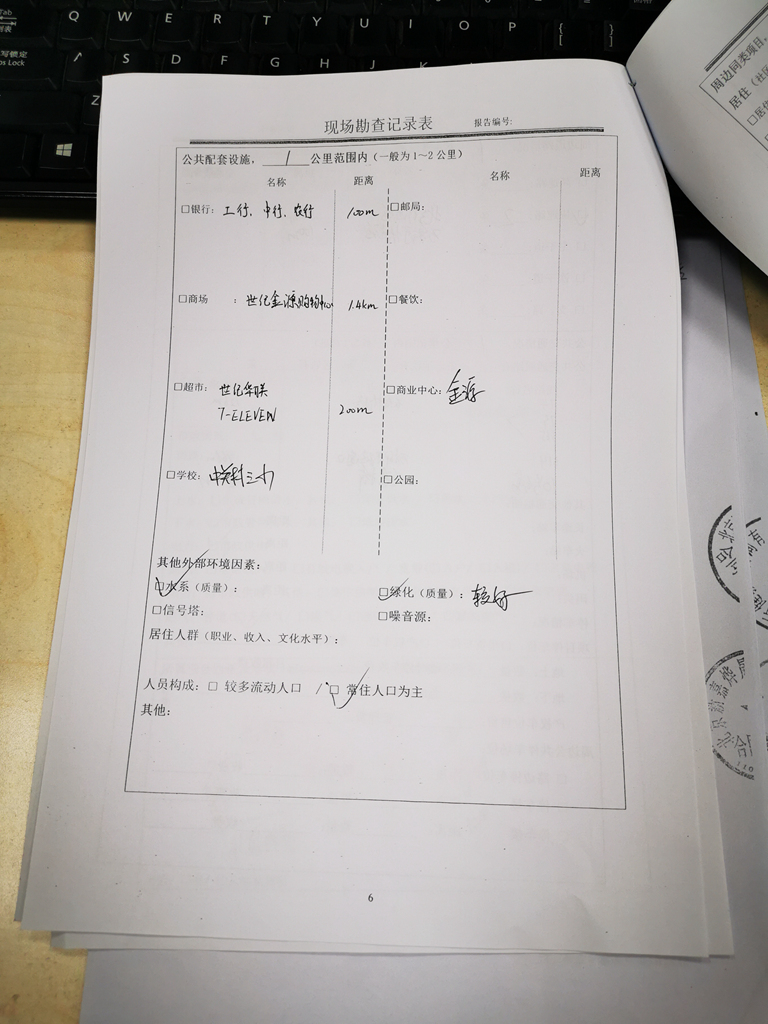 Tab
Q W E R T Y U I O P { [ } ]
Caps Lock
A S D F G H J K L
Z
现场勘查记录表 报告编号:
公共配套设施, 1 公里范围内（一般为1~2公里）
名称 距离 名称 距离
□银行: 工行、中行、农行 100m □邮局:
□商场 : 世纪金源购物中心 1.4km □餐饮:
□超市: 世纪华联 □商业中心: 金源
7-ELEVEN 200m
□学校: 中关村三小 □公园:
其他外部环境因素:
□水系（质量）: □绿化（质量）: 较好
□信号塔: □噪音源:
居住人群（职业、收入、文化水平）:
人员构成: □ 较多流动人口 / □ 常住人口为主
其他:
6
周边同类项目
居住（社区
□居住